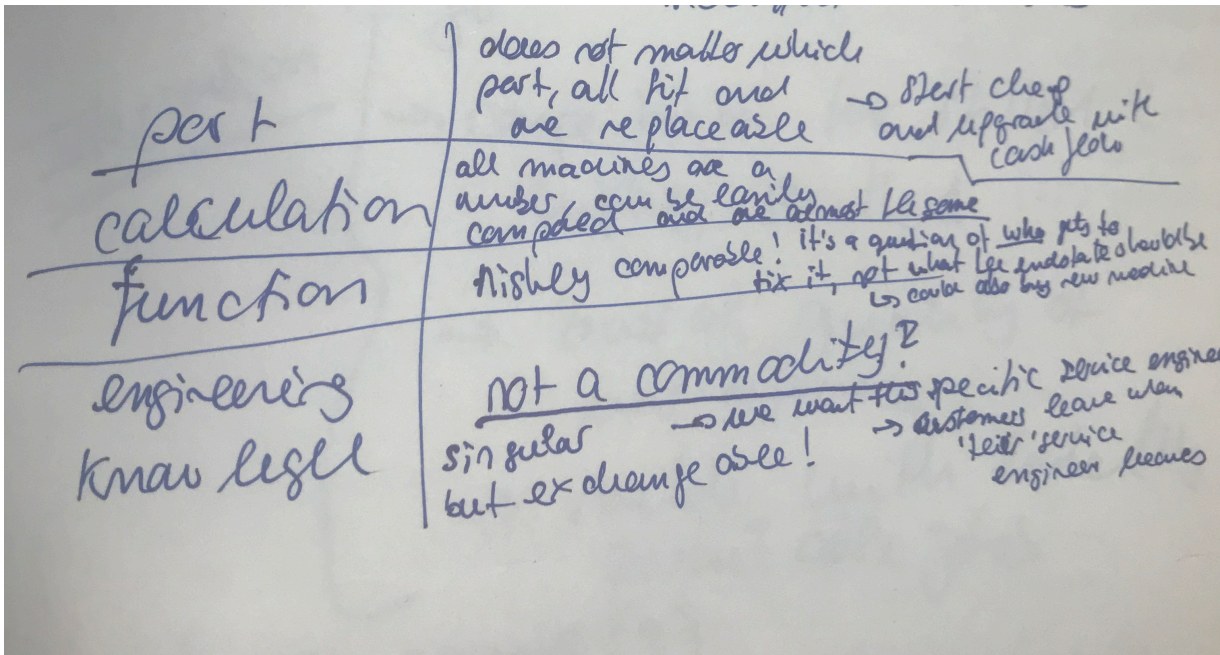 part
does not matter which
part, all fit and
are replaceable
→ start cheap
and upgrade with
cash flow
calculation
all machines are a
number, can be easily
compared and are almost the same
function
highly comparable! it's a question of who gets to
fix it, not what the endstate should be
↳ could also buy new machine
engineering
knowledge
not a commodity?
singular
but exchangeable!
→ we want this specific service engineer
→ customers leave when
'their' service
engineer leaves